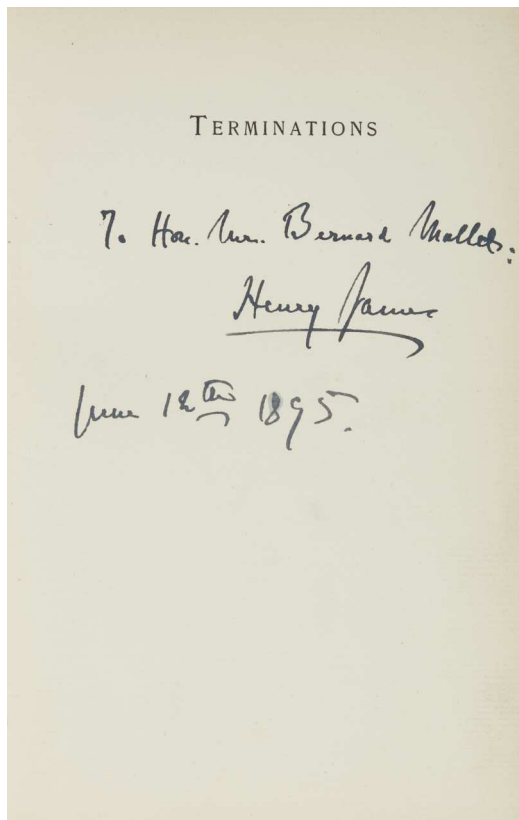 TERMINATIONS
To Hon. Mrs. Bernard Mallet:
Henry James
June 12th 1895.